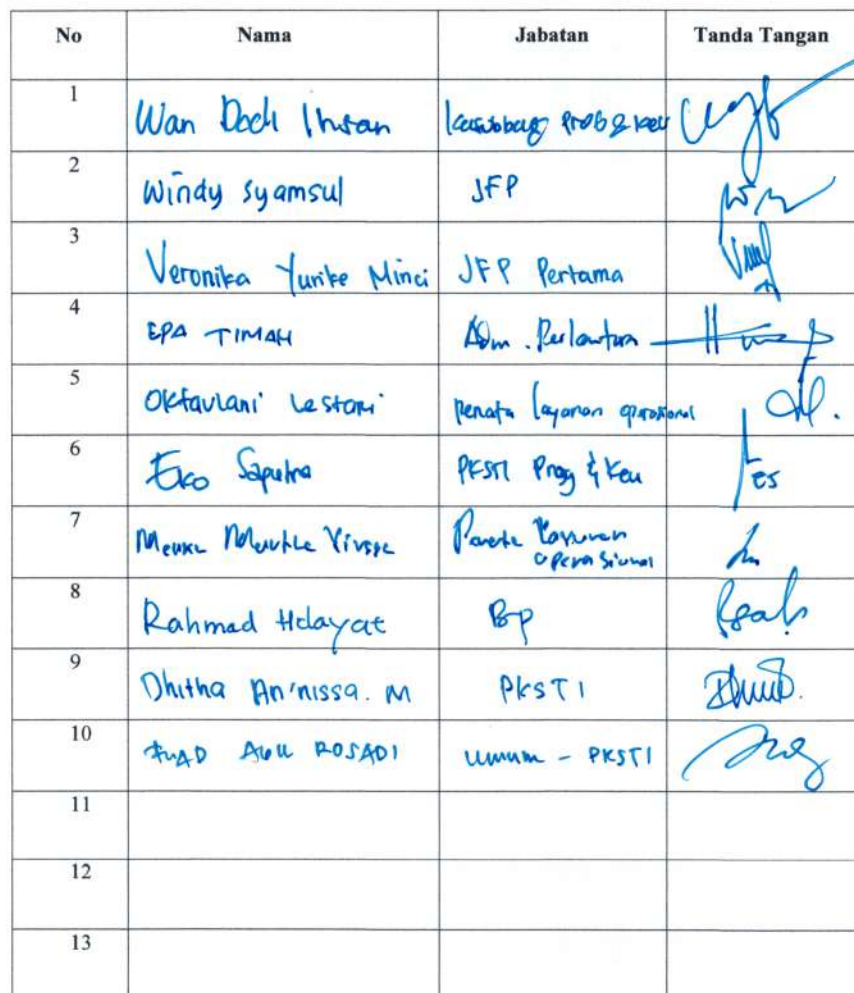 No Nama Jabatan Tanda Tangan
1 Wan Dodi Ihsan Kasubbag Prog & Keu
2 Windy Syamsul JFP
3 Veronika Yurike Minci JFP Pertama
4 EPA TIMAH Adm. Perkantoran
5 Oktaviani Lestari Penata layanan operasional
6 Eko Saputra PKSTI Prog & Keu
7 Penata Layanan
operasional
8 Rahmad Hidayat BP
9 Dhitha An'nissa. M PKSTI
10 FUAD ABU ROSADI Umum - PKSTI
11
12
13